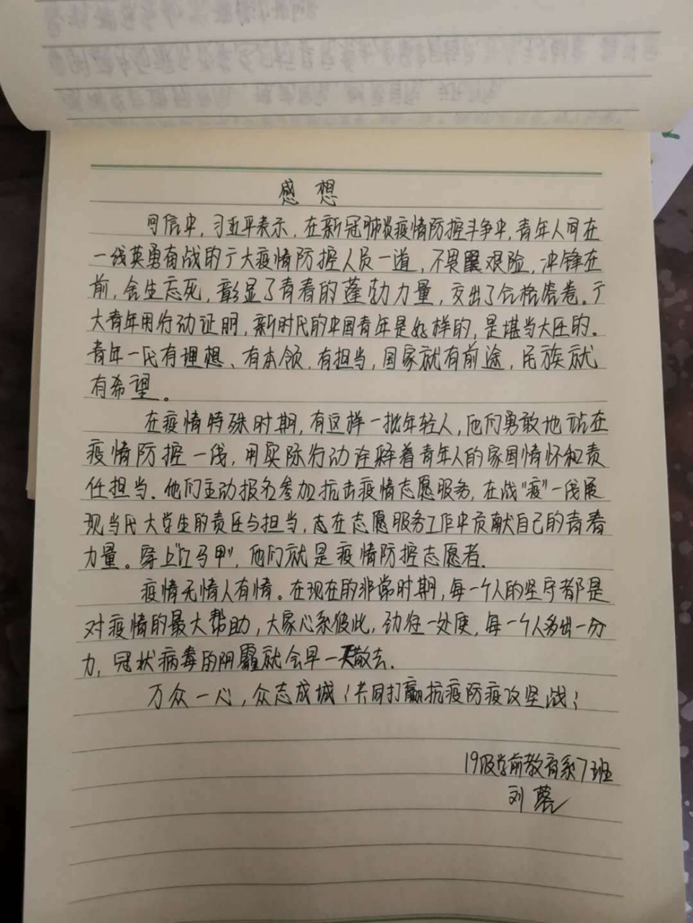 感想
回信中，习近平表示，在新冠肺炎疫情防控斗争中，青年人同在
一线英勇奋战的广大疫情防控人员一道，不畏艰险，冲锋在
前，舍生忘死，彰显了青春的蓬勃力量，交出了合格答卷。广
大青年用行动证明，新时代的中国青年是好样的，是堪当大任的。
青年一代有理想、有本领，有担当，国家就有前途，民族就
有希望。
在疫情特殊时期，有这样一批年轻人，他们勇敢地站在
疫情防控一线，用实际行动诠释着青年人的家国情怀和责
任担当。他们主动报名参加抗击疫情志愿服务，在战"疫"一线展
现当代大学生的责任与担当，志在志愿服务工作中贡献自己的青春
力量。穿上"红马甲"，他们就是疫情防控志愿者。
疫情无情人有情。在现在的非常时期，每一个人的坚守都是
对疫情的最大帮助，大家心系彼此，劲往一处使，每一个人多出一分
力，冠状病毒的阴霾就会早一天散去。
万众一心，众志成城！共同打赢抗疫防疫攻坚战！
19级学前教育系7班
刘蓉